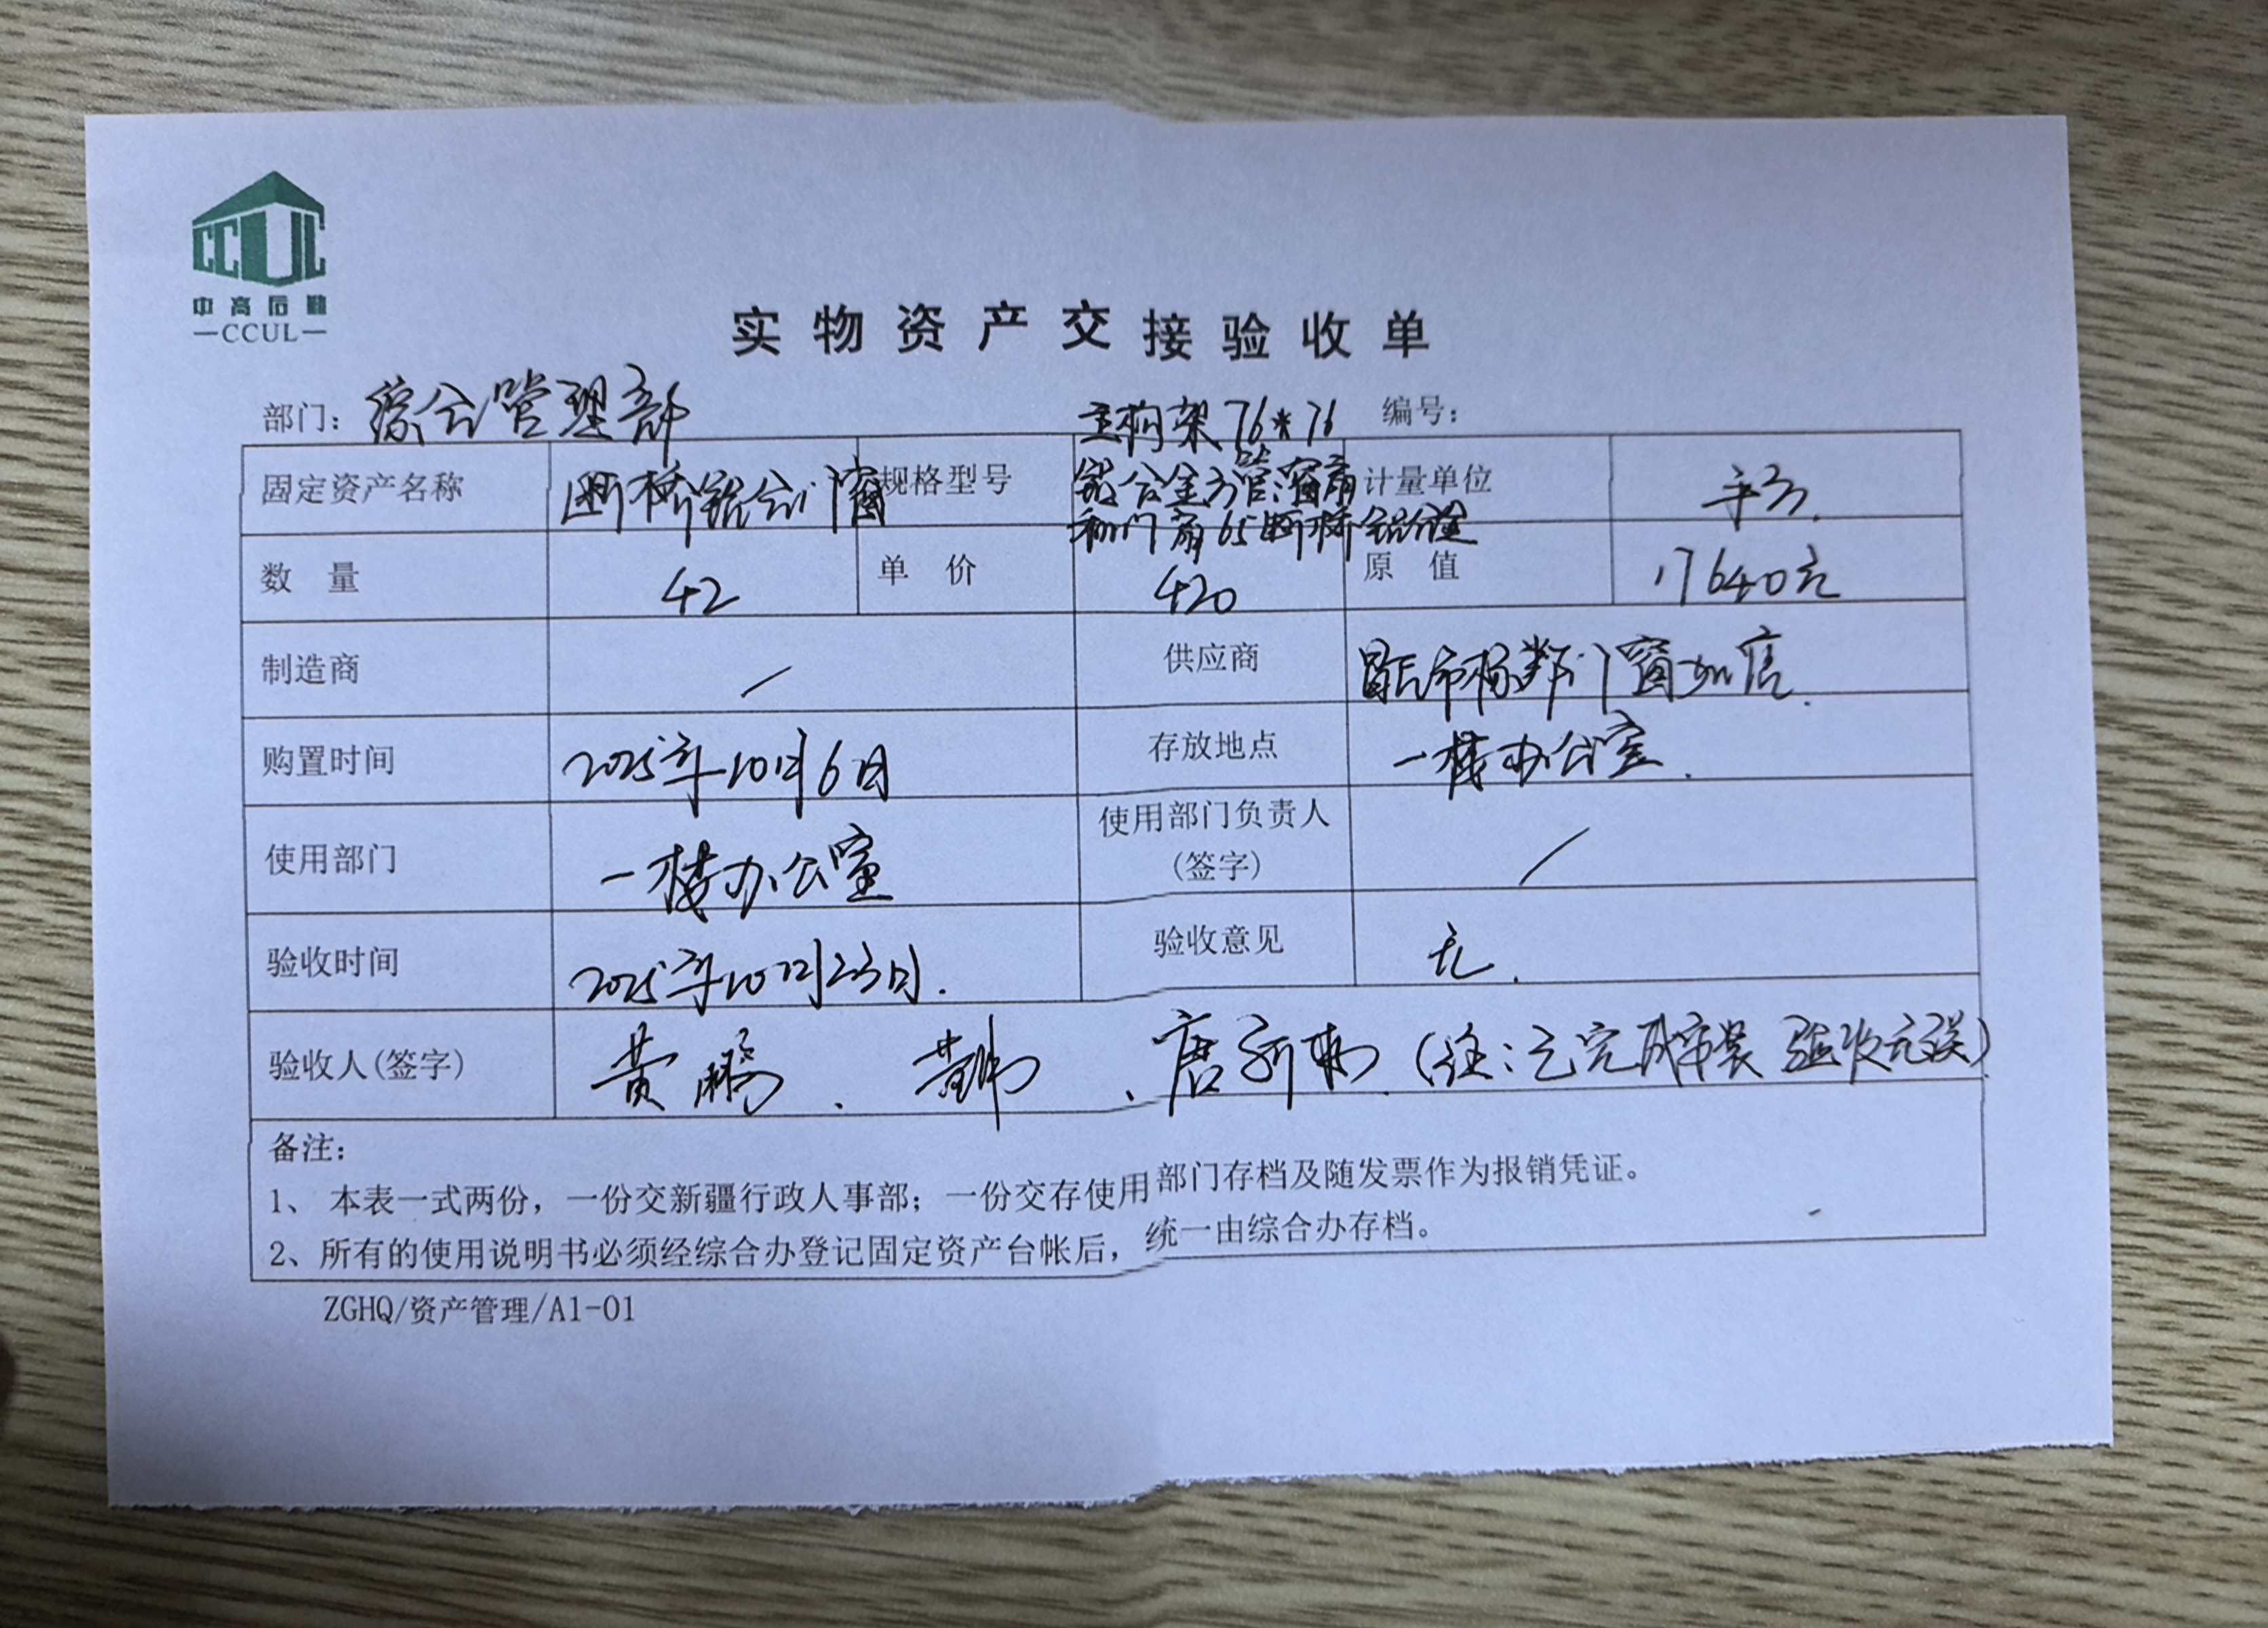 CCUL
中高后勤
—CCUL—
实物资产交接验收单
部门：综合管理部
编号：
固定资产名称 断桥铝合门窗 规格型号 主构架76*76铝合金方管，窗扇和门扇65断桥铝 计量单位 平方.
数 量 42 单 价 420 原 值 17640元
制造商 / 供应商 昌吉市 门窗 店.
购置时间 2025年10月6日 存放地点 一楼办公室.
使用部门 一楼办公室 使用部门负责人(签字) /
验收时间 2025年10月23日. 验收意见 无.
验收人(签字) 黄鹏 、 、唐 (注：已完成安装 验收无误)
备注：
1、 本表一式两份，一份交新疆行政人事部；一份交存使用部门存档及随发票作为报销凭证。
2、所有的使用说明书必须经综合办登记固定资产台帐后，统一由综合办存档。
ZGHQ/资产管理/A1-01